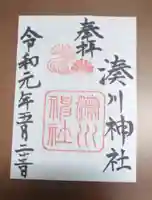 奉拝
湊川神社
湊川神社
令和元年五月二十二日